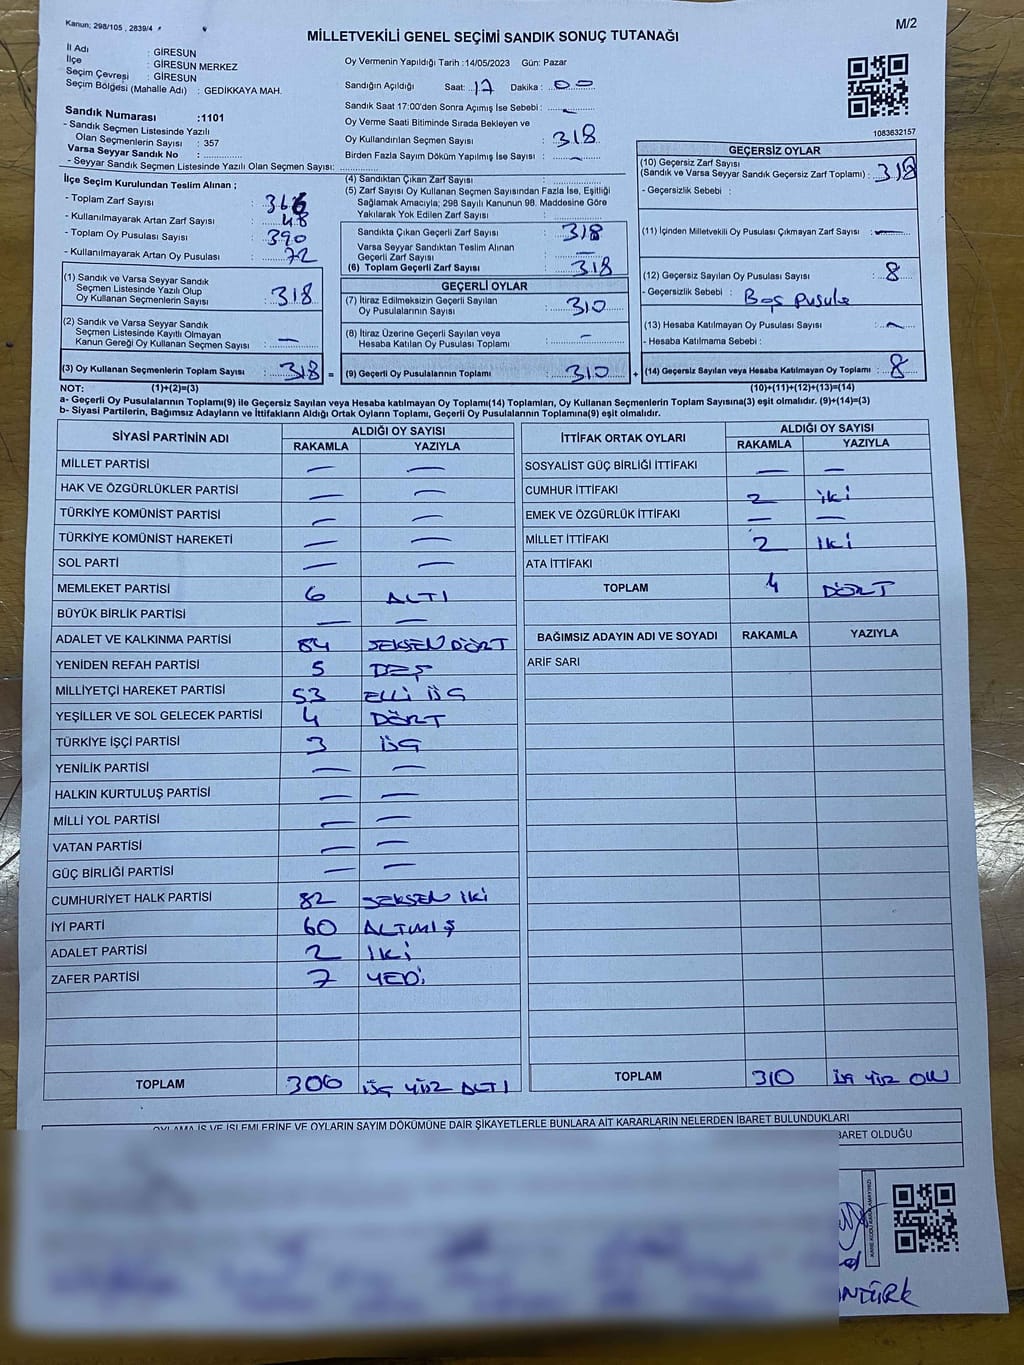 Kanun; 298/105 , 2839/4
M/2
MİLLETVEKİLİ GENEL SEÇİMİ SANDIK SONUÇ TUTANAĞI
İl Adı : GİRESUN
İlçe : GİRESUN MERKEZ
Seçim Çevresi : GİRESUN
Seçim Bölgesi (Mahalle Adı) : GEDİKKAYA MAH.
Sandık Numarası :1101
- Sandık Seçmen Listesinde Yazılı
Olan Seçmenlerin Sayısı : 357
Varsa Seyyar Sandık No :
- Seyyar Sandık Seçmen Listesinde Yazılı Olan Seçmen Sayısı:
Oy Vermenin Yapıldığı Tarih :14/05/2023 Gün: Pazar
Sandığın Açıldığı Saat: 17 Dakika : 00
Sandık Saat 17:00'den Sonra Açımış İse Sebebi : —
Oy Verme Saati Bitiminde Sırada Bekleyen ve
Oy Kullandırılan Seçmen Sayısı : 318
Birden Fazla Sayım Döküm Yapılmış İse Sayısı : —
1083632157
İlçe Seçim Kurulundan Teslim Alınan ;
- Toplam Zarf Sayısı : 366
- Kullanılmayarak Artan Zarf Sayısı : 48
- Toplam Oy Pusulası Sayısı : 390
- Kullanılmayarak Artan Oy Pusulası : 72
(1) Sandık ve Varsa Seyyar Sandık
Seçmen Listesinde Yazılı Olup
Oy Kullanan Seçmenlerin Sayısı : 318
(2) Sandık ve Varsa Seyyar Sandık
Seçmen Listesinde Kayıtlı Olmayan
Kanun Gereği Oy Kullanan Seçmen Sayısı : —
(3) Oy Kullanan Seçmenlerin Toplam Sayısı : 318 =
(4) Sandıktan Çıkan Zarf Sayısı :
(5) Zarf Sayısı Oy Kullanan Seçmen Sayısından Fazla İse, Eşitliği
Sağlamak Amacıyla; 298 Sayılı Kanunun 98. Maddesine Göre
Yakılarak Yok Edilen Zarf Sayısı :
Sandıkta Çıkan Geçerli Zarf Sayısı : 318
Varsa Seyyar Sandıktan Teslim Alınan
Geçerli Zarf Sayısı : —
(6) Toplam Geçerli Zarf Sayısı : 318
GEÇERLİ OYLAR
(7) İtiraz Edilmeksizin Geçerli Sayılan
Oy Pusulalarının Sayısı : 310
(8) İtiraz Üzerine Geçerli Sayılan veya
Hesaba Katılan Oy Pusulası Toplamı : —
(9) Geçerli Oy Pusulalarının Toplamı : 310 +
GEÇERSİZ OYLAR
(10) Geçersiz Zarf Sayısı
(Sandık ve Varsa Seyyar Sandık Geçersiz Zarf Toplamı) : 318
- Geçersizlik Sebebi :
(11) İçinden Milletvekili Oy Pusulası Çıkmayan Zarf Sayısı : —
(12) Geçersiz Sayılan Oy Pusulası Sayısı : 8
- Geçersizlik Sebebi : Boş pusula
(13) Hesaba Katılmayan Oy Pusulası Sayısı : —
- Hesaba Katılmama Sebebi :
(14) Geçersiz Sayılan veya Hesaba Katılmayan Oy Toplamı : 8
NOT: (1)+(2)=(3) (10)+(11)+(12)+(13)=(14)
a- Geçerli Oy Pusulalarının Toplamı(9) ile Geçersiz Sayılan veya Hesaba katılmayan Oy Toplamı(14) Toplamları, Oy Kullanan Seçmenlerin Toplam Sayısına(3) eşit olmalıdır. (9)+(14)=(3)
b- Siyasi Partilerin, Bağımsız Adayların ve İttifakların Aldığı Ortak Oyların Toplamı, Geçerli Oy Pusulalarının Toplamına(9) eşit olmalıdır.
SİYASİ PARTİNİN ADI ALDIĞI OY SAYISI
RAKAMLA YAZIYLA
MİLLET PARTİSİ — —
HAK VE ÖZGÜRLÜKLER PARTİSİ — —
TÜRKİYE KOMÜNİST PARTİSİ — —
TÜRKİYE KOMÜNİST HAREKETİ — —
SOL PARTİ — —
MEMLEKET PARTİSİ 6 ALTI
BÜYÜK BİRLİK PARTİSİ — —
ADALET VE KALKINMA PARTİSİ 84 SEKSEN DÖRT
YENİDEN REFAH PARTİSİ 5 BEŞ
MİLLİYETÇİ HAREKET PARTİSİ 53 ELLİ ÜÇ
YEŞİLLER VE SOL GELECEK PARTİSİ 4 DÖRT
TÜRKİYE İŞÇİ PARTİSİ 3 ÜÇ
YENİLİK PARTİSİ — —
HALKIN KURTULUŞ PARTİSİ — —
MİLLİ YOL PARTİSİ — —
VATAN PARTİSİ — —
GÜÇ BİRLİĞİ PARTİSİ — —
CUMHURİYET HALK PARTİSİ 82 SEKSEN İKİ
İYİ PARTİ 60 ALTMIŞ
ADALET PARTİSİ 2 İKİ
ZAFER PARTİSİ 7 YEDİ
TOPLAM 306 ÜÇ YÜZ ALTI
İTTİFAK ORTAK OYLARI ALDIĞI OY SAYISI
RAKAMLA YAZIYLA
SOSYALİST GÜÇ BİRLİĞİ İTTİFAKI — —
CUMHUR İTTİFAKI 2 İKİ
EMEK VE ÖZGÜRLÜK İTTİFAKI — —
MİLLET İTTİFAKI 2 İKİ
ATA İTTİFAKI
TOPLAM 4 DÖRT
BAĞIMSIZ ADAYIN ADI VE SOYADI RAKAMLA YAZIYLA
ARİF SARI
TOPLAM 310 ÜÇ YÜZ ON
OYLAMA İŞ VE İŞLEMLERİNE VE OYLARIN SAYIM DÖKÜMÜNE DAİR ŞİKAYETLERLE BUNLARA AİT KARARLARIN NELERDEN İBARET BULUNDUKLARI
BARET OLDUĞU